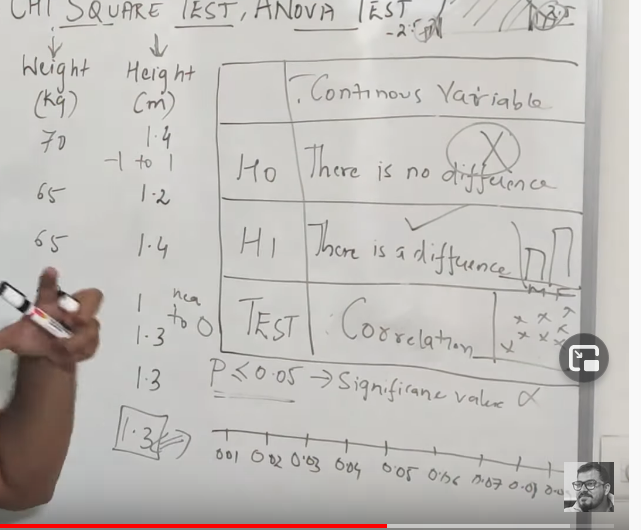 CHI SQUARE TEST, ANOVA TEST
Weight
(Kg)
70
65
65
Height
(m)
1.4
-1 to 1
1.2
1.4
1
nea
to 0
1.3
1.3
1.3
: Continous Variable
H0 There is no difference
H1 There is a difference
M F
TEST : Correlation
P ≤ 0.05 → Significane value α
0.01 0.02 0.03 0.04 0.05 0.06 0.07 0.09